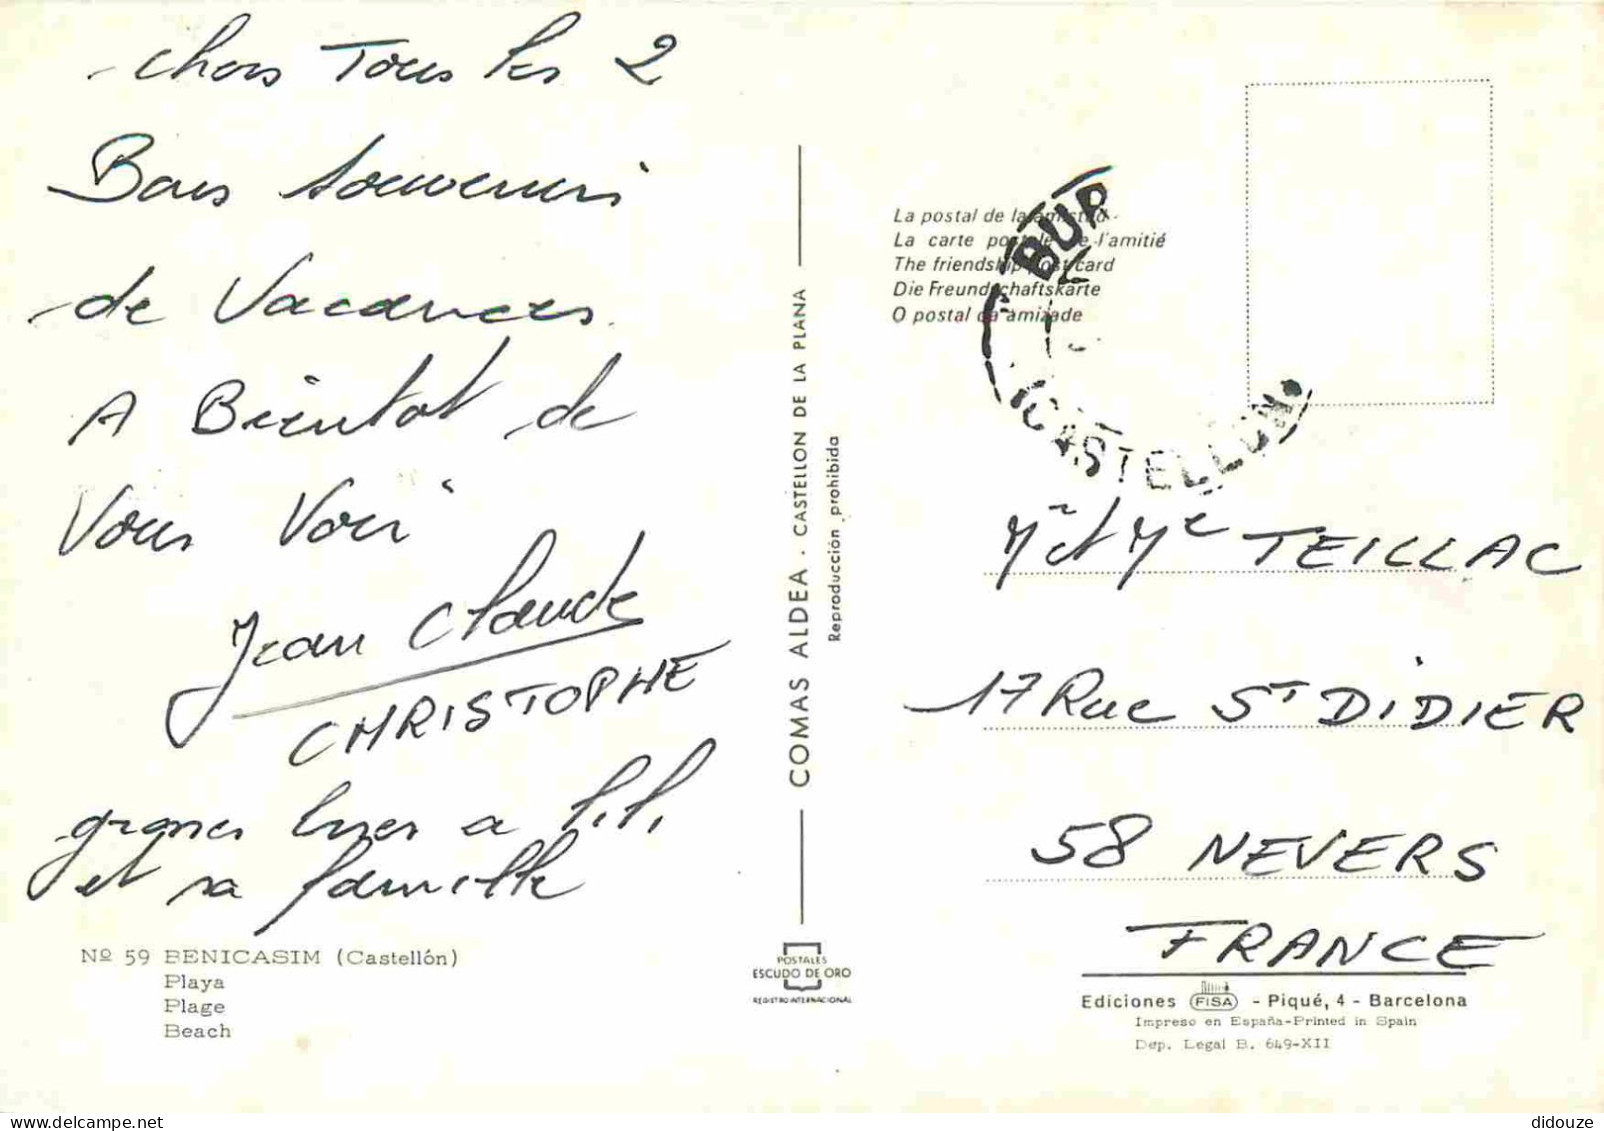 chers Tous les 2
Bons souvenirs
de Vacances
A Bientot de
Vous Voir
Jean Claude
CHRISTOPHE
grosses bises a
et sa famille
Nº 59 BENICASIM (Castellón)
Playa
Plage
Beach
COMAS ALDEA · CASTELLON DE LA PLANA
Reproducción prohibida
POSTALES
ESCUDO DE ORO
REGISTRO INTERNACIONAL
La postal de la amistad
La carte postale de l'amitié
The friendship post card
Die Freundschaftskarte
O postal da amizade
BUR
CASTELLON
Mr et Me TEILLAC
17 Rue ST DIDIER
58 NEVERS
FRANCE
Ediciones FISA - Piqué, 4 - Barcelona
Impreso en España-Printed in Spain
Dep. Legal B. 649-XII
didouze